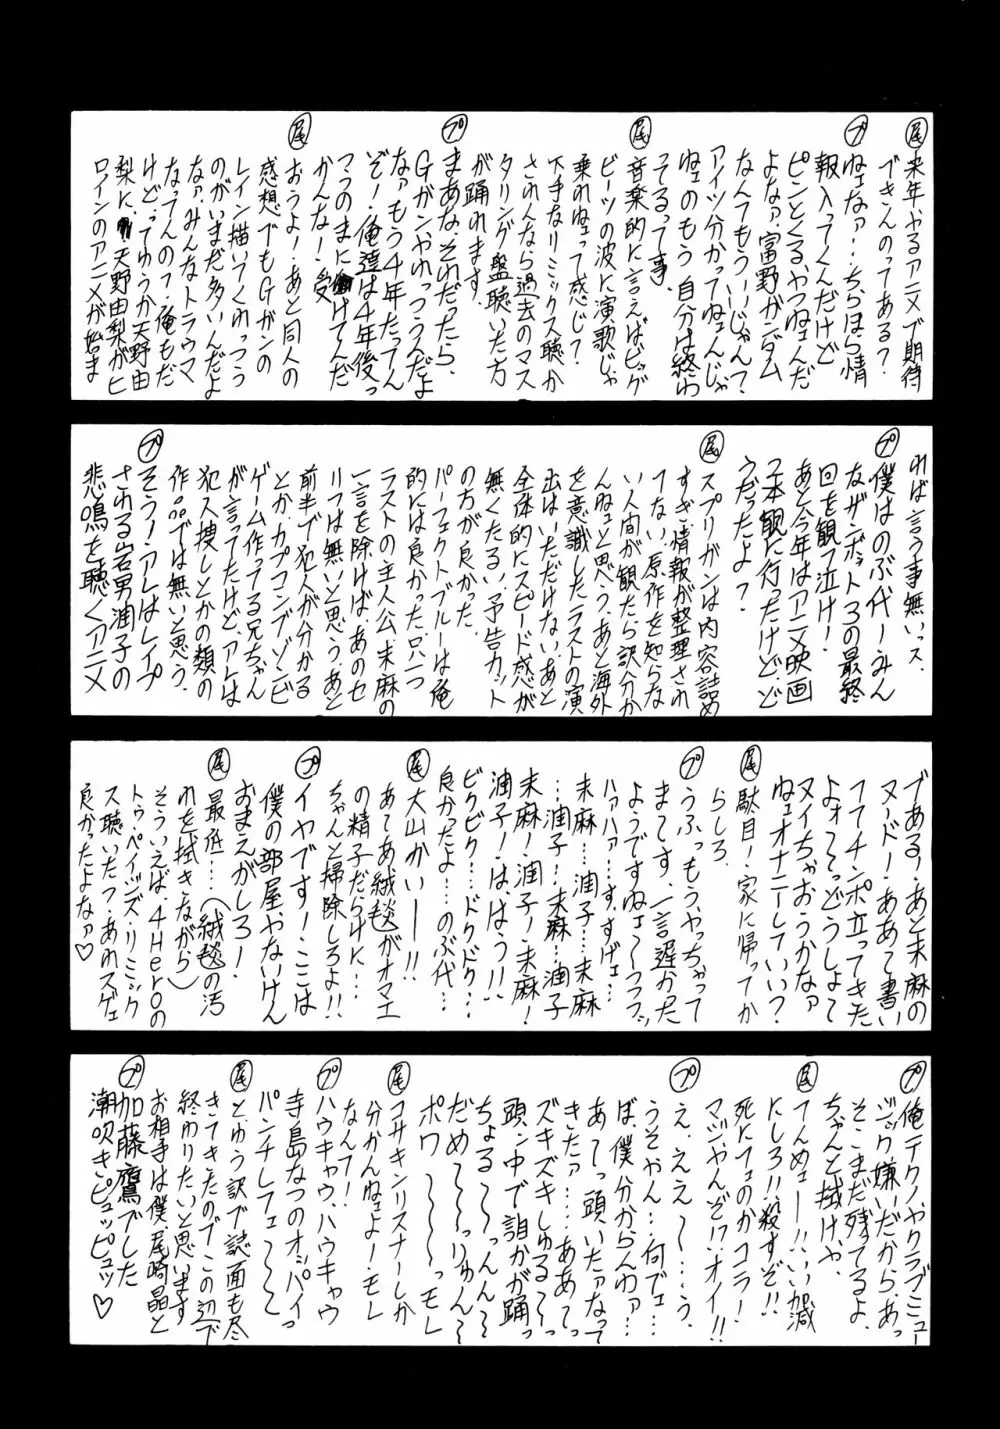 尾 来年やるアニメで期待
できんのってある?
プ ねェなァ…ちらほら情
報入ってくんだけど
ピンとくるやつねェんだ
よなァ。富野ガンダム
なんてもういいじゃん?
アイツ分かってねェんじゃ
ねェのもう自分は終わ
ってるって事。
尾 音楽的に言えばビッグ
ビーツの波に演歌じゃ
乗れねェって感じ?
下手なリミックス聴か
されんなら過去のマス
タリング盤聴いた方
が踊れます。
プ まあな。それだったら、
Gガンやれっつうんだよ
なァ。もう4年たってん
ぞ!俺達は4年後っ
かんな!受
尾 おうよ!あと同人の
感想でもGガンの
レイン描いてくれっつう
のがいまだ多いんだよ
なァ。みんなトラウマ
なってんのっ?俺もだ
けど。ってゆうか天野由
梨に、天野由梨がヒ
ロインのアニメが始ま
れば言う事無いっス。
プ 僕はのぶ代ーみん
なザンボット3の最終
回を観て泣け!
あと今年はアニメ映画
2本観に行ったけど、ど
うだったよ?
尾 スプリガンは内容詰め
すぎ、情報が整理され
てない。原作を知らな
い人間が観たら訳分か
んねェと思う。あと海外
を意識したラストの演
出はいただけない。あと
全体的にスピード感が
無くたるい。予告カット
の方が良かった。
パーフェクトブルーは俺
的には良かった。只一つ
ラストの主人公、末麻の
一言を除けば。あのセ
リフは無いと思う。あと
前半で犯人が分かる
とか、カプコンでゾンビ
ゲーム作ってる兄ちゃん
が言ってたけど、アレは
犯人捜しとかの類の
作品では無いと思う。
プ そう!アレはレイプ
される岩男潤子の
悲鳴を聴くアニメ
である!あと末麻の
ヌード!ああて書い
ててチンポ立ってきた
よォ〜っどうしよて
ヌイちゃおうかなァ
ねェオナニーしていい?
尾 駄目!家に帰ってか
らしろ。
プ うふっもうやっちゃって
まーてす。一言遅かった
ようですねェ〜フフフッ
ハァハァ…すすげェ…
末麻…潤子…末麻
…潤子…末麻…潤子
末麻!潤子!末麻!
潤子!はほう!!
ビクビク…ドクドク…
良かったよ…のぶ代…
尾 大山かいーー!!
あてあ絨毯がオマエ
の精子だらけに…
ちゃんと掃除しろよ!!
プ イヤです!ここは
僕の部屋やないけん
おまえがしろ!
尾 最低…(絨毯の汚
れを拭きながら)
そういえば、4Heroの
トゥ・ペイジズ・リミック
ス聴いたっ?あれスゲェ
良かったよなァ♡
プ 俺テクノやクラブミュー
ジック嫌いだから。あっ
そこまだ残ってるよ、
ちゃんと拭けや。
尾 てんめェーー!!いい加減
にしろ!!殺すぞ!!
死にてェのかコラ!
マジやんぞ!?オイ!!
プ え、ええ〜〜……う、
うそやん…何でェ…
ば、僕分からんわァ…
あ〜っ頭いたァなって
きたァ……ああ〜っ
ズキズキしゅる〜〜っ
頭ン中で誰かが踊っ
ちょる〜〜っんん〜
だめ〜〜っりゅん〜〜
ポワ〜〜〜っモレ
尾 コサキンリスナーしか
分かんねェよ!モレ
なんて!
プ ハウキャウ、ハウキャウ
寺島なつのオッパイっ
パンチしてェ〜〜〜
尾 とゆう訳で誌面も尽
きてきたのでこの辺で
終わりたいと思います
お相手は僕、尾崎晶と
プ 加藤鷹でした
潮吹きピュッピュッ♡